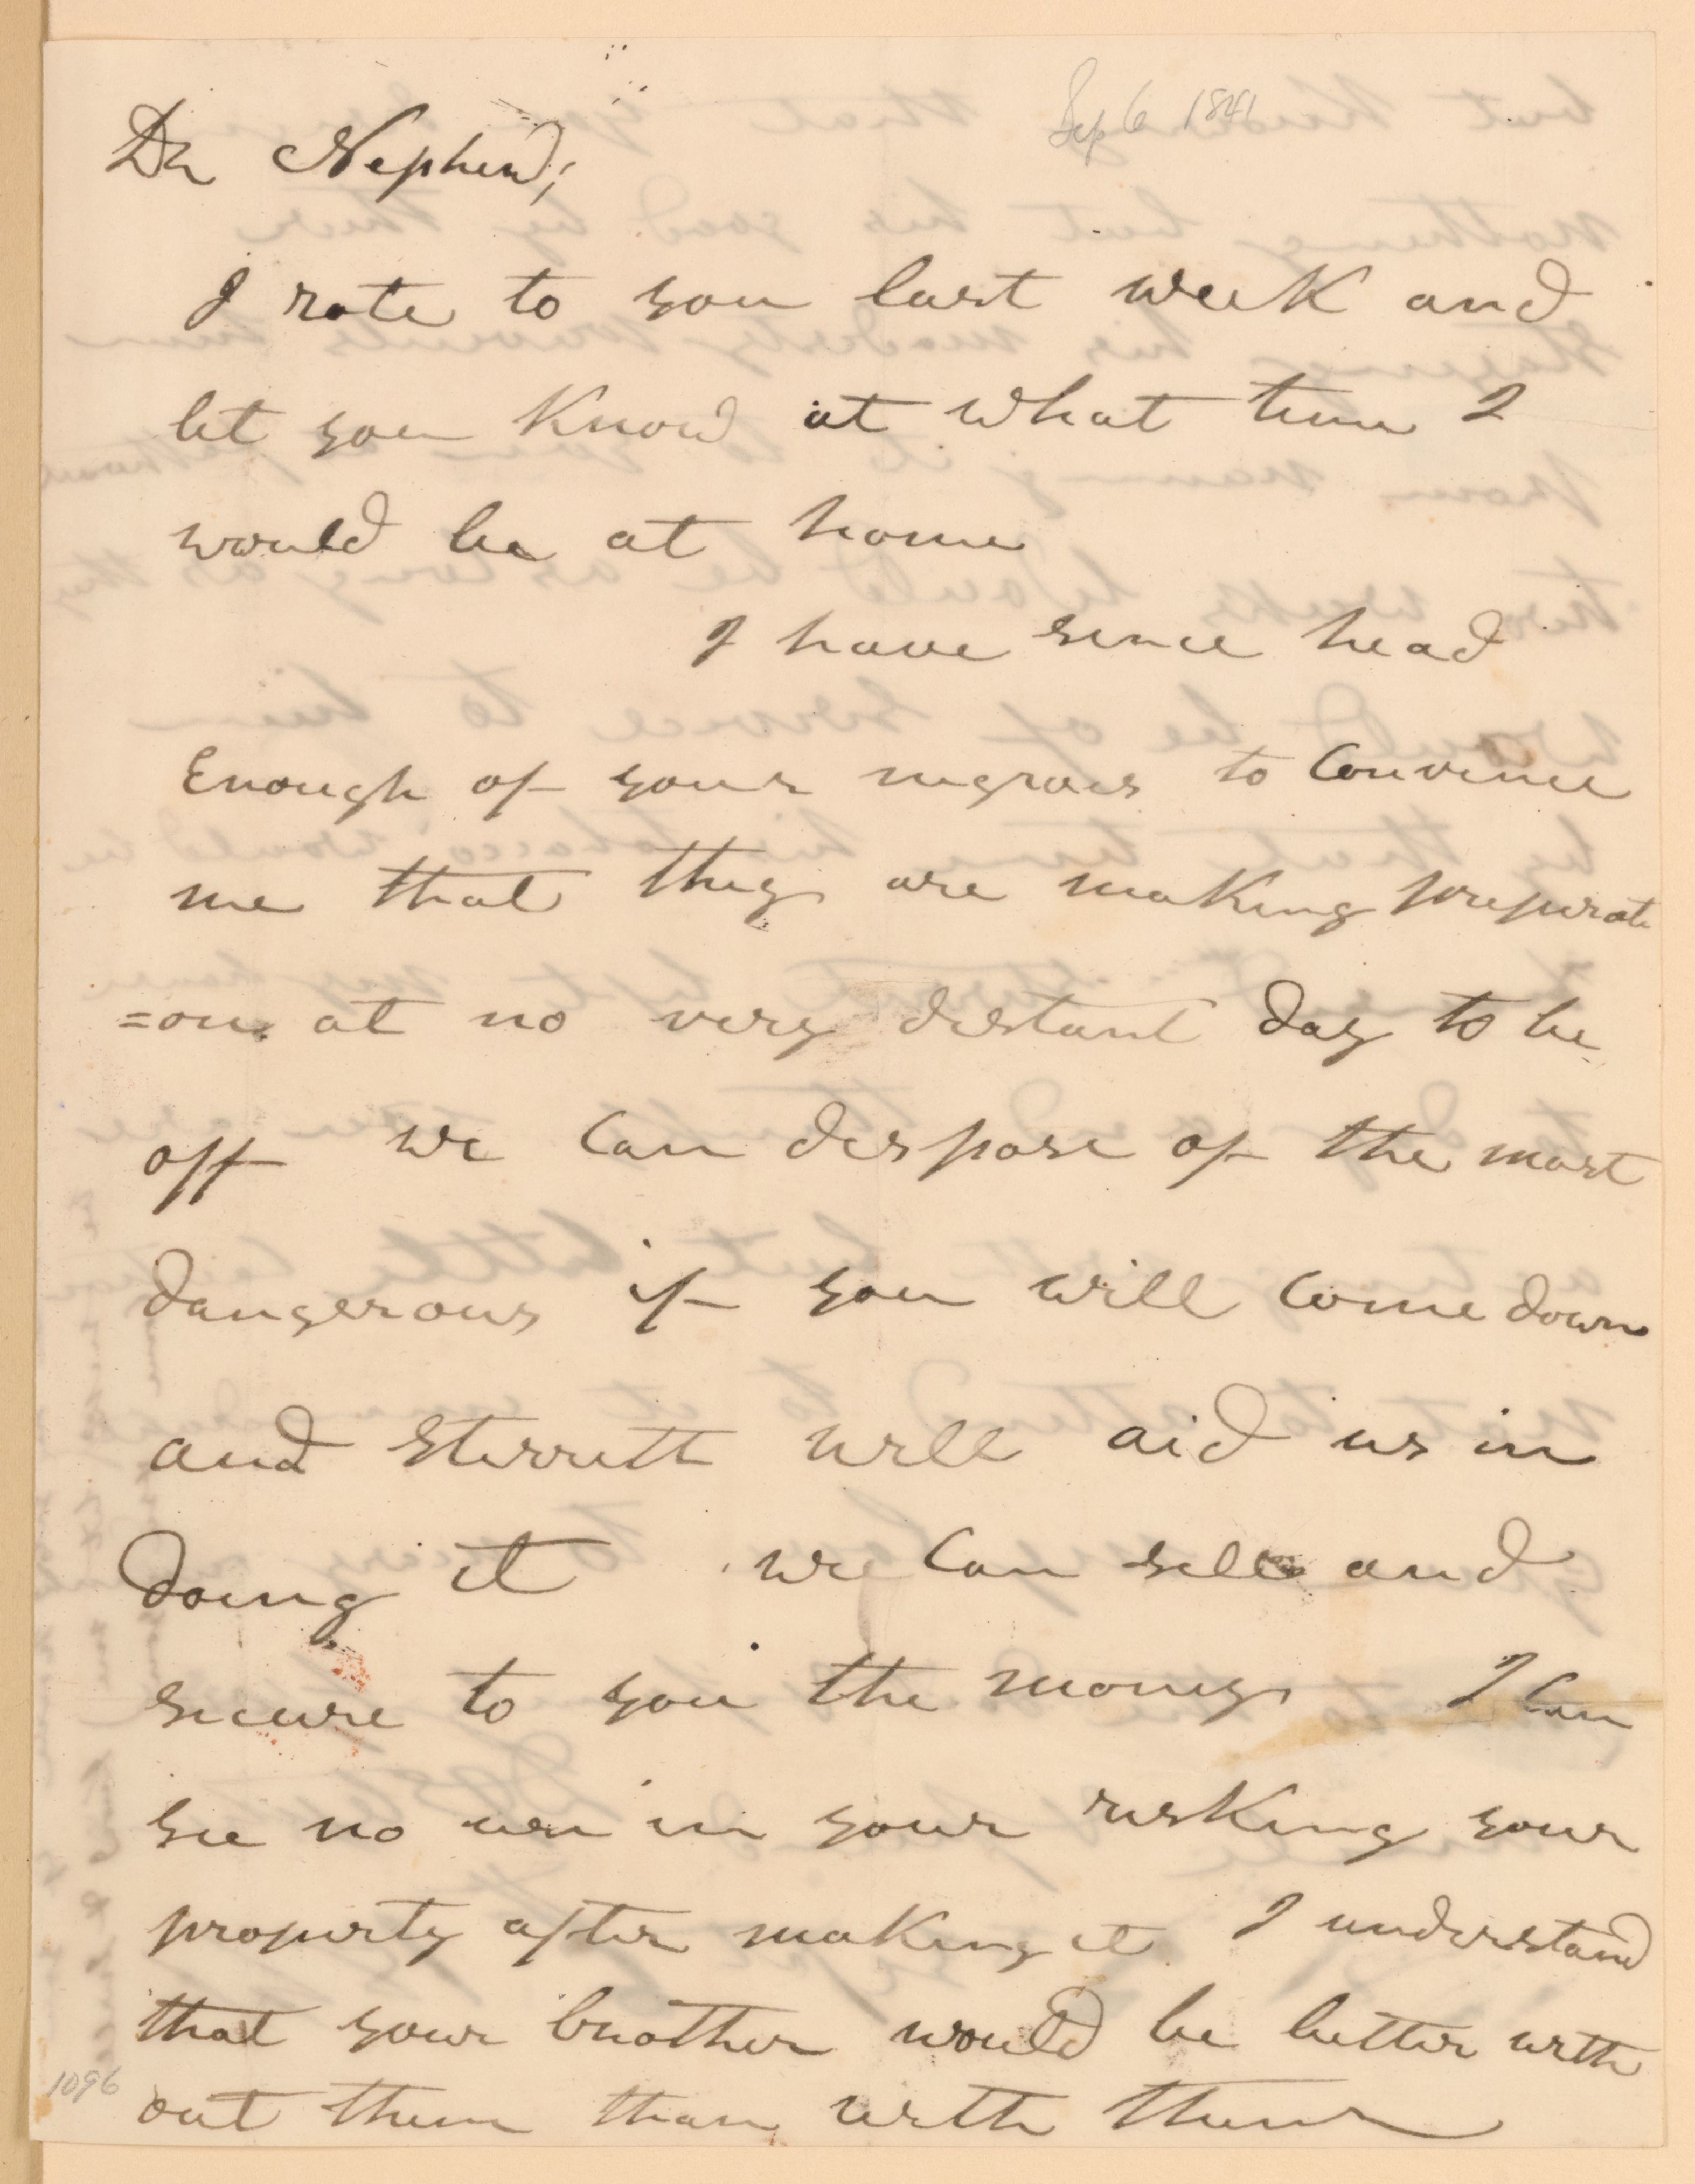 Sep 6 1841
Dr Nephew;
I rote to you last week and
let you Know at what time I
would be at home
I have since head
Enough of your negroes to Convince
me that they are making preparati
=on at no very distant day to be
off we Can dispose of the most
dangerous if you will Come down
and Sterrett will aid us in
doing it we Can sell and
secure to you the money I Can
see no use in your risking your
property after making it I understand
that your brother would be better with
out them than with them
1096